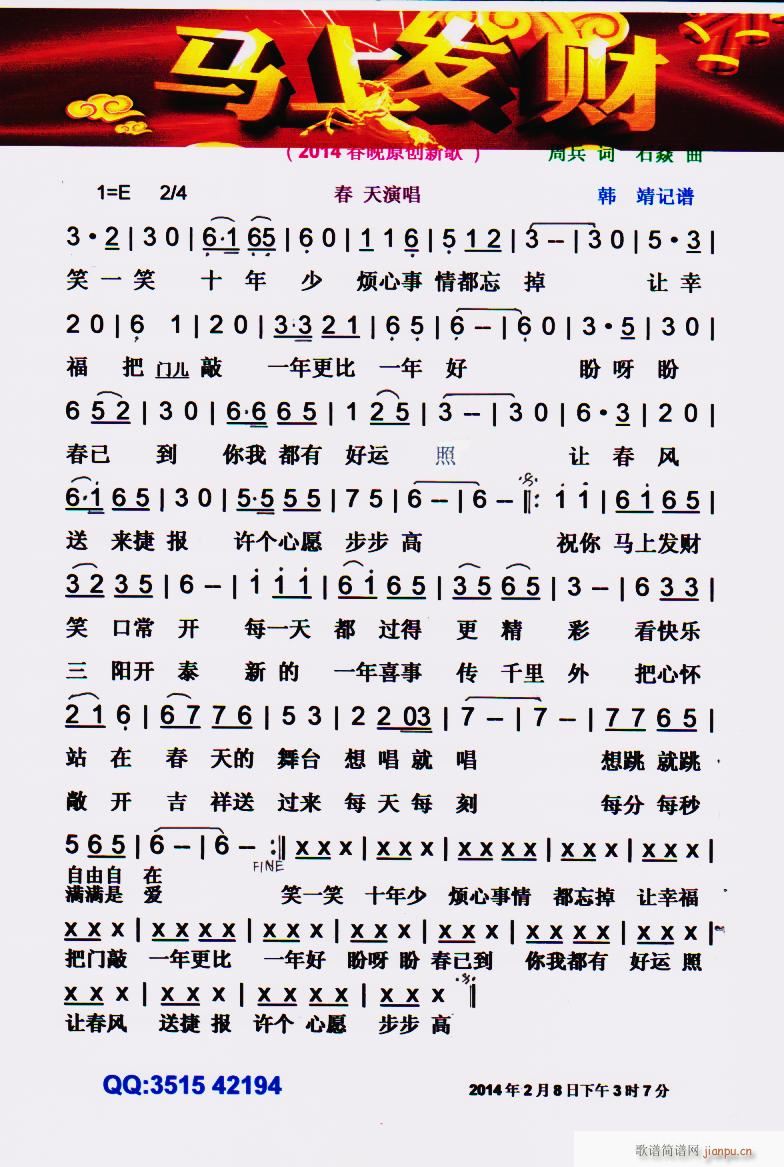 马上发财
(2014春晚原创新歌) 周兵 词 石焱 曲
1=E 2/4 春 天演唱 韩 靖记谱
3·2|30|6·1 65|60|116|512|3-|30|5·3|
笑一笑 十年少 烦心事 情都忘掉 让幸
20|6 1|20|3·3 21|65|6-|60|3·5|30|
福 把 门儿 敲 一年更比 一年 好 盼呀盼
6 52|30|6·6 65|1 25|3-|30|6·3|20|
春已 到 你我都有 好运 照 让春风
6·1 65|30|5·5 55|75|6-|6-:|1 1|61 65|
送 来捷报 许个心愿 步步高 祝你 马上发财
32 35|6-|1 11|61 65|35 65|3-|6 33|
笑 口常 开 每一天 都 过得 更 精 彩 看快乐
三 阳开 泰 新 的 一年喜事 传 千里 外 把心怀
21 6|67 76|53|2 2 03|7-|7-|77 65|
站 在 春 天的 舞台 想 唱就 唱 想跳 就跳
敞 开 吉 祥送 过来 每 天每 刻 每分 每秒
5 65|6-|6-:|xx x|xx x|xx xx|xx x|xx x|
FINE
自由自 在
满满是 爱 笑一笑 十年少 烦心事情 都忘掉 让幸福
xx x|xx xx|xx x|xx x|xx x|xx xx|xx x|
把门敲 一年更比 一年好 盼呀 盼 春已到 你我都有 好运 照
xx x|xx xx|xx xx|xx x|
让春风 送捷 报 许个 心愿 步步 高
QQ:3515 42194 2014年2月8日下午3时7分
歌谱简谱网 jianpu.cn